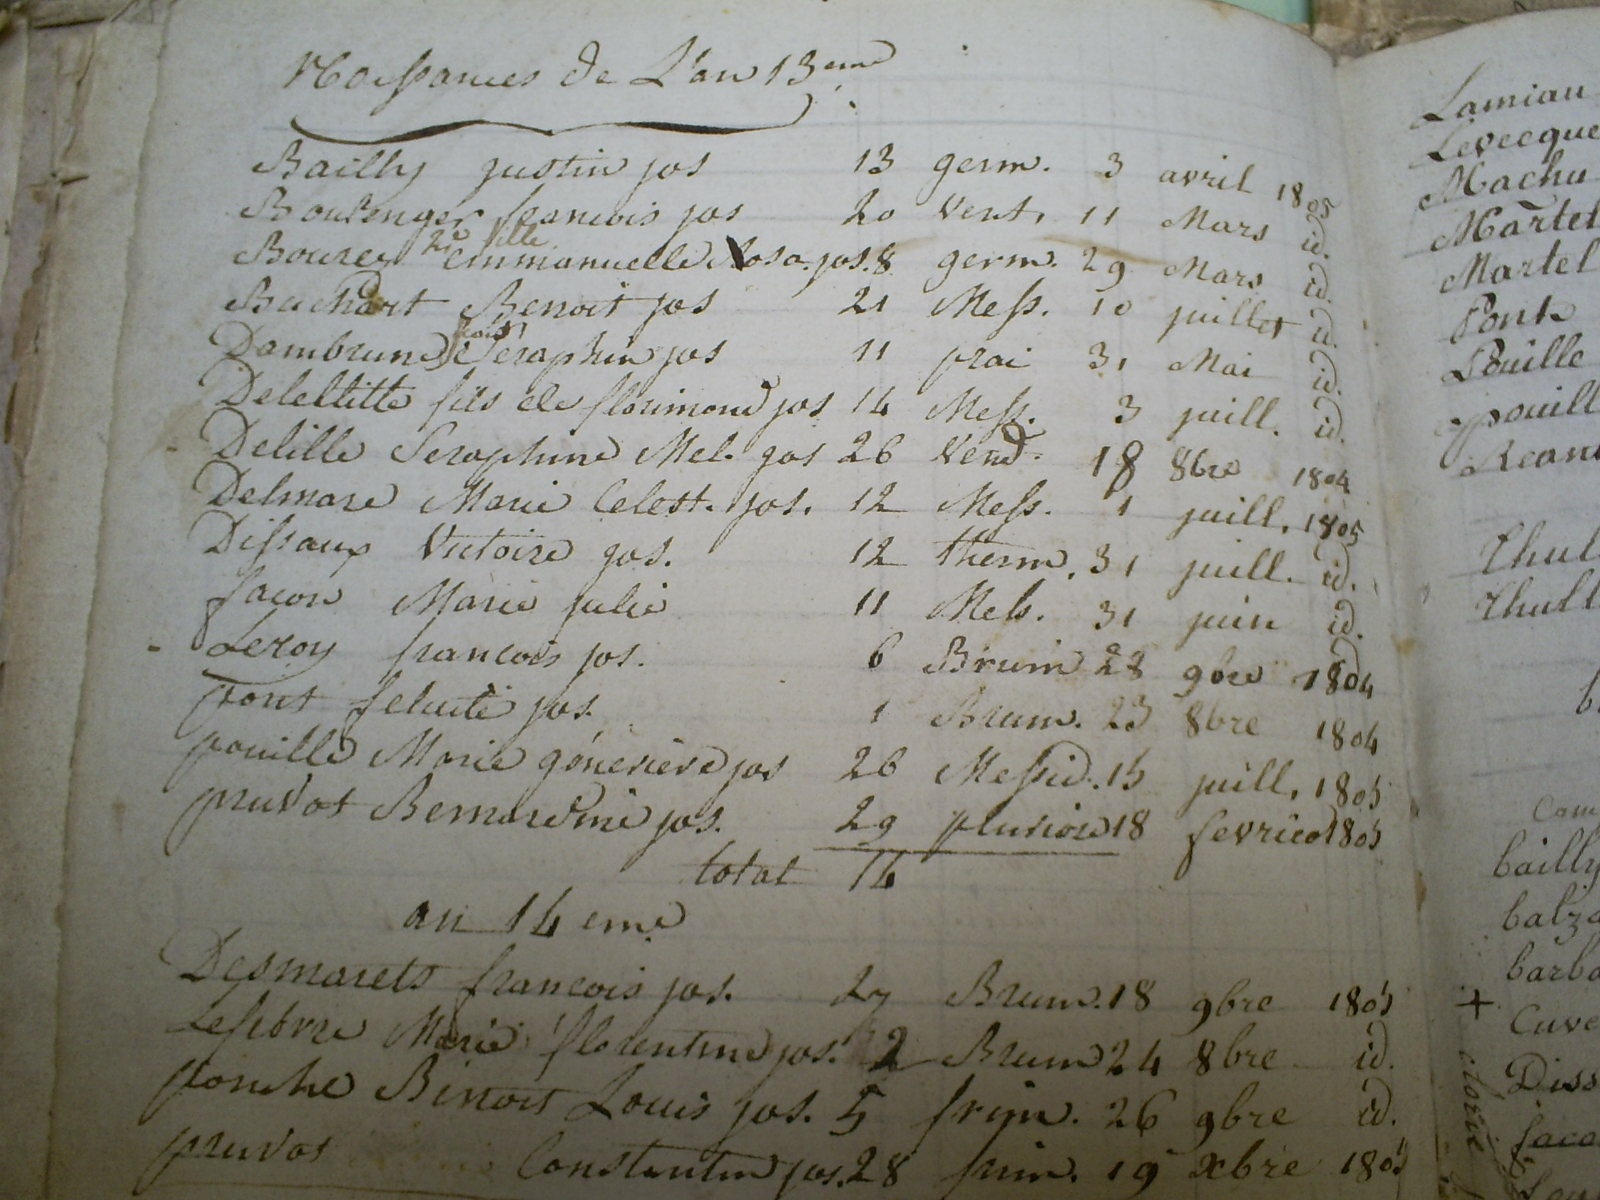 Naissances de L'an 13eme
Bailly justin jos 13 germ. 3 avril 1805
Boulenger francois jos 20 Vent. 11 Mars id.
2e fille
Bourez emmanuelle Rosa. jos. 8 germ. 29 Mars id.
Buchart Benoit jos 21 Mess. 10 juillet id.
Dambrune Seraphin jos 11 prai 31 Mai id.
Delettitte fils de florimond jos 14 Mess. 3 juill. id.
Delille Seraphine Mel. jos 26 Vend. 18 8bre 1804
Delmare Marie Celest. jos. 12 Mess. 1 juill. 1805
Dissaux Victoire jos. 12 therm. 31 juill. id.
facon Marie julie 11 Mess. 31 juin id.
Leroy francois jos. 6 Brum 28 9bre 1804
pont felicité jos. 1 Brum. 23 8bre 1804
pouille Marie géneviève jos 26 Messid. 15 juill. 1805
pruvot Bernardine jos. 29 pluviose 18 fevrier 1805
total 14
an 14 eme
Desmarets francois jos. 27 Brum. 18 9bre 1805
Lefebvre Marie florentine jos. 2 Brum 24 8bre id.
ponche Benoit Louis jos. 5 frim. 26 9bre id.
pruvot Constantin jos. 28 frim. 19 xbre 1805
Lamiau
Levecque
Machu
Martel
Martel
Pont
Pouille
pouill
Thul
Thull
bailly
balza
barba
+ Cuve
Diss
faco